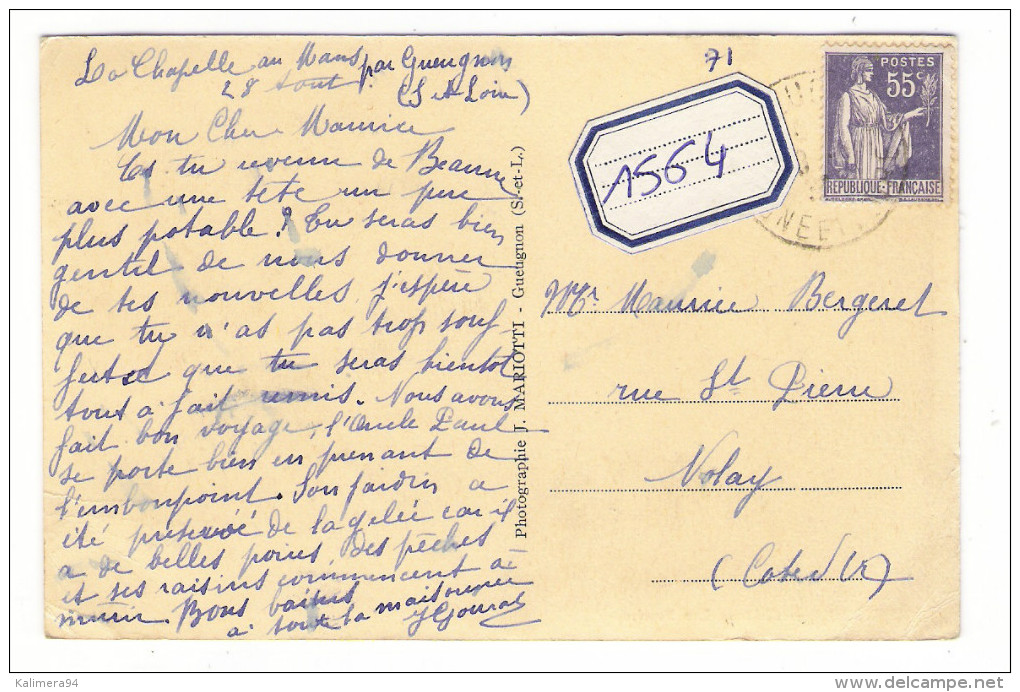 La Chapelle au Mans par Gueugnon
28 Aout (S et Loire)
Mon Cher Maurice
Es tu revenu de Beaune
avec une tête un peu
plus potable? Tu seras bien
gentil de nous donner
de tes nouvelles j'espère
que tu n'as pas trop souf
fert et que tu seras bientot
tout à fait remis. Nous avons
fait bon voyage, l'Oncle Paul
se porte bien en prenant de
l'embonpoint. Son jardin a
été préservé de la gelée car il
a de belles poires, des pêches
et ses raisins commencent à
murir. Bons baisers
à toute la maisonnée
Photographie J. MARIOTTI - Gueugnon (S.-et-L.)
71
1564
POSTES
55c
REPUBLIQUE-FRANÇAISE
Mr Maurice Bergeret
rue St Pierre
Nolay
(Cote d'Or)
Kalimera94
http://www.delcampe.net